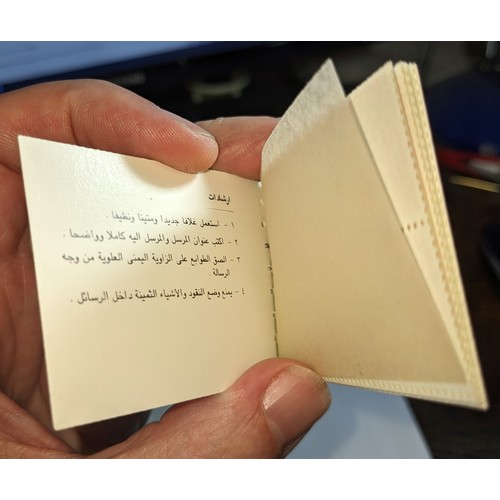 ارشادات
١ – استعمل غلافا جديدا ومتينا ونظيفا .
٢ – اكتب عنوان المرسل والمرسل اليه كاملا وواضحا .
٣ – الصق الطوابع على الزاوية اليمنى العلوية من وجه
الرسالة
٤ – يمنع وضع النقود والاشياء الثمينة داخل الرسائل .